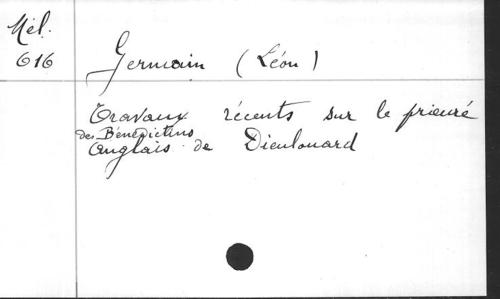 Mél.
616
Germain (Léon)
Travaux récents sur le prieuré
des Bénédictins
Anglais de Dieulouard